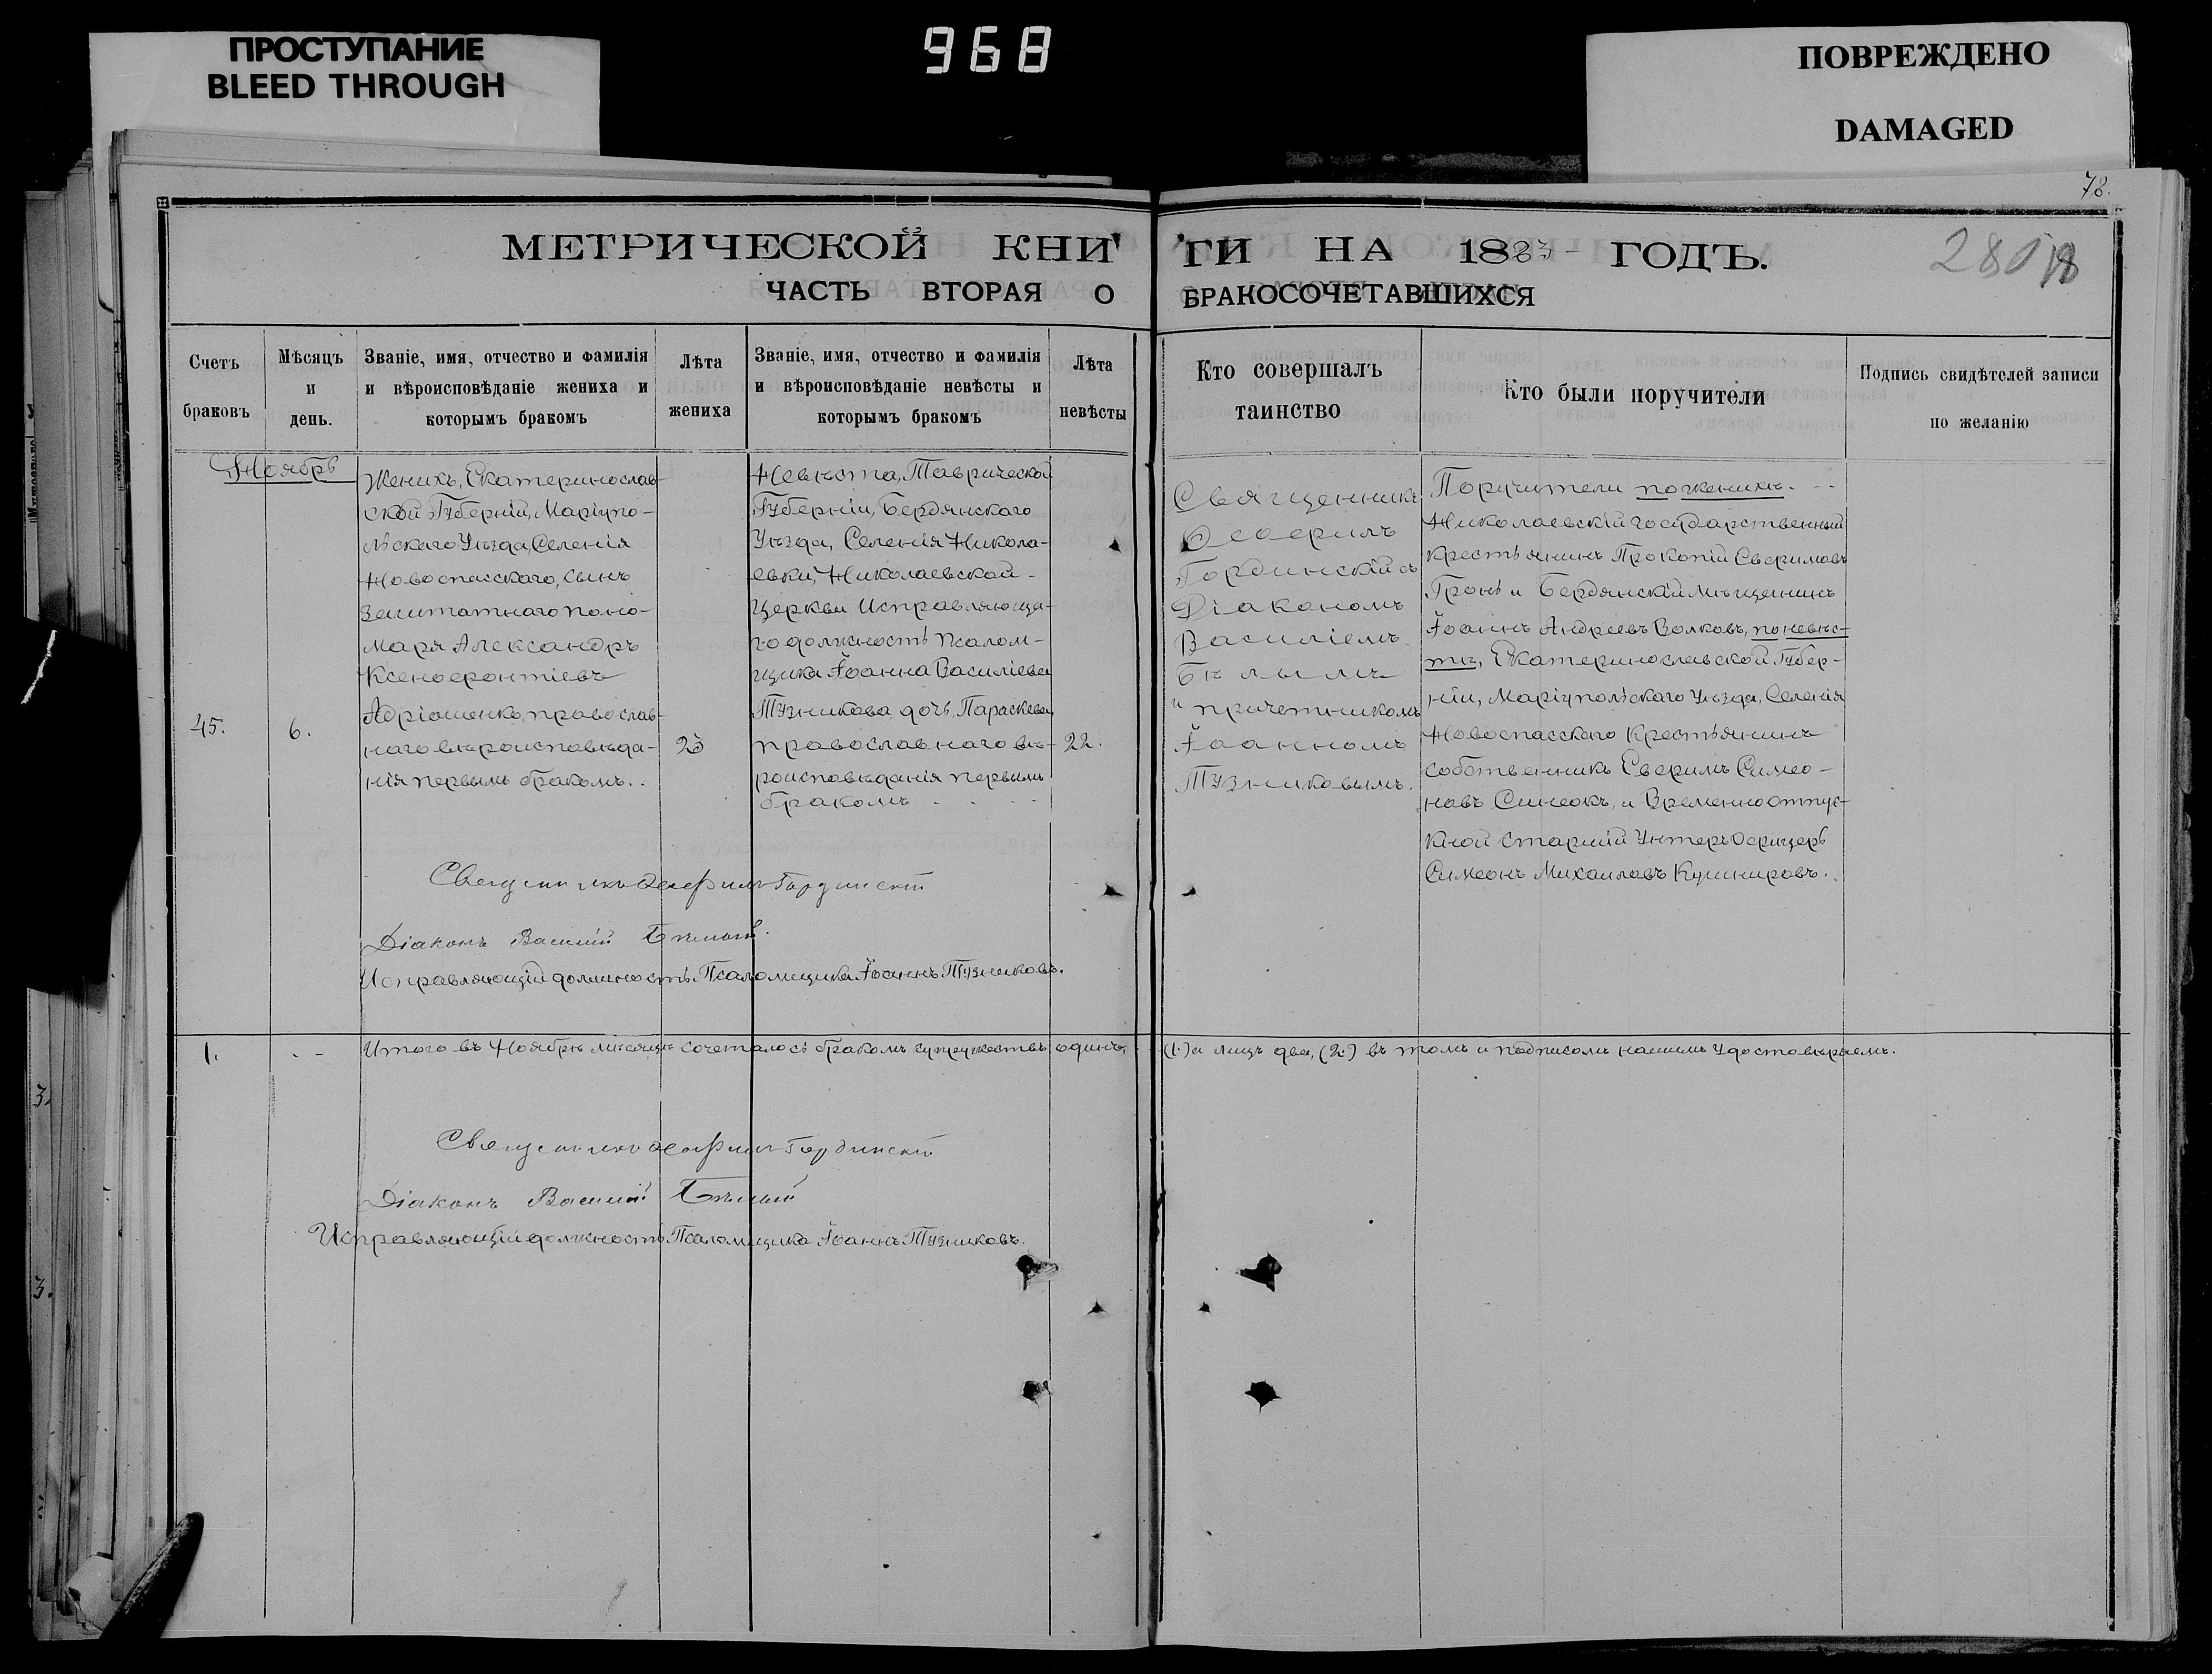 ПРОСТУПАНИЕ
BLEED THROUGH
968
ПОВРЕЖДЕНО
DAMAGED
78.
МЕТРИЧЕСКОЙ КНИ
ГИ НА 1883 ГОДЪ.
280
ЧАСТЬ ВТОРАЯ О
БРАКОСОЧЕТАВШИХСЯ
Счетъ
браковъ
Мѣсяцъ
и
день.
Званіе, имя, отчество и фамилія
и вѣроисповѣданіе жениха и
которымъ бракомъ
Лѣта
жениха
Званіе, имя, отчество и фамилія
и вѣроисповѣданіе невѣсты и
которымъ бракомъ
Лѣта
невѣсты
Кто совершалъ
таинство
Кто были поручители
Подпись свидѣтелей записи
по желанію
Ноябрь
45.
6.
Женихъ, Екатеринослав-
ской Губерніи, Маріупо-
льскаго Уѣзда, Селенія
Новоспасскаго, сынъ
Заштатнаго поно-
маря Александръ
Ксенофонтіевъ
Адріошенко, православ-
наго вѣроисповѣда-
нія первымъ бракомъ..
23
Невѣста, Таврической
Губерніи, Бердянскаго
Уѣзда, Селенія Никола-
евки, Николаевской
Церкви Исправляюща-
го должность Псалом-
щика Іоанна Василіева
Тузникова дочь, Параскева,
православнаго вѣ-
роисповѣданія первымъ
бракомъ
22.
Священникъ
Ѳеофилъ
Гординскій съ
Діакономъ
Василіемъ
Бѣлымъ
и причетникомъ
Іоанномъ
Тузниковымъ.
Поручители по женихѣ.
Николаевскій государственный
крестьянинъ Прокопій Ефимовъ
Гронь и Бердянскій мѣщанинъ
Іоаннъ Андреевъ Волковъ, по невѣс-
тѣ, Екатеринославской Губер-
ніи, Маріупольскаго Уѣзда, Селенія
Новоспасскаго Крестьянинъ
собственникъ Ефимъ Симео-
новъ Синеокъ, и Временно отпус-
кной старшій Унтеръ Офицеръ
Симеонъ Михаиловъ Кушнировъ.
Священникъ Ѳеофилъ Гординскій
Діаконъ Василій Бѣлый.
Исправляющій должность Псаломщика Іоаннъ Тузниковъ.
1.
Итого въ Ноябрѣ мѣсяцѣ сочеталось бракомъ супружествъ одинъ,
(1.) а лицъ два, (2.) въ томъ и подписомъ нашимъ удостовѣряемъ.
Священникъ Ѳеофилъ Гординскій
Діаконъ Василій Бѣлый
Исправляющій должность Псаломщика Іоаннъ Тузниковъ.
3.